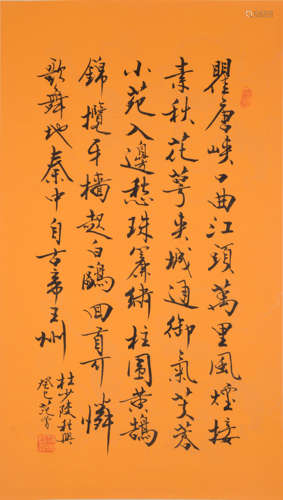 瞿唐峽口曲江頭萬里風煙接
素秋花萼夾城通御氣芙蓉
小苑入邊愁珠簾繡柱圍黃鵠
錦纜牙檣起白鷗回首可憐
歌舞地秦中自古帝王州
杜少陵秋興
癸巳范曾